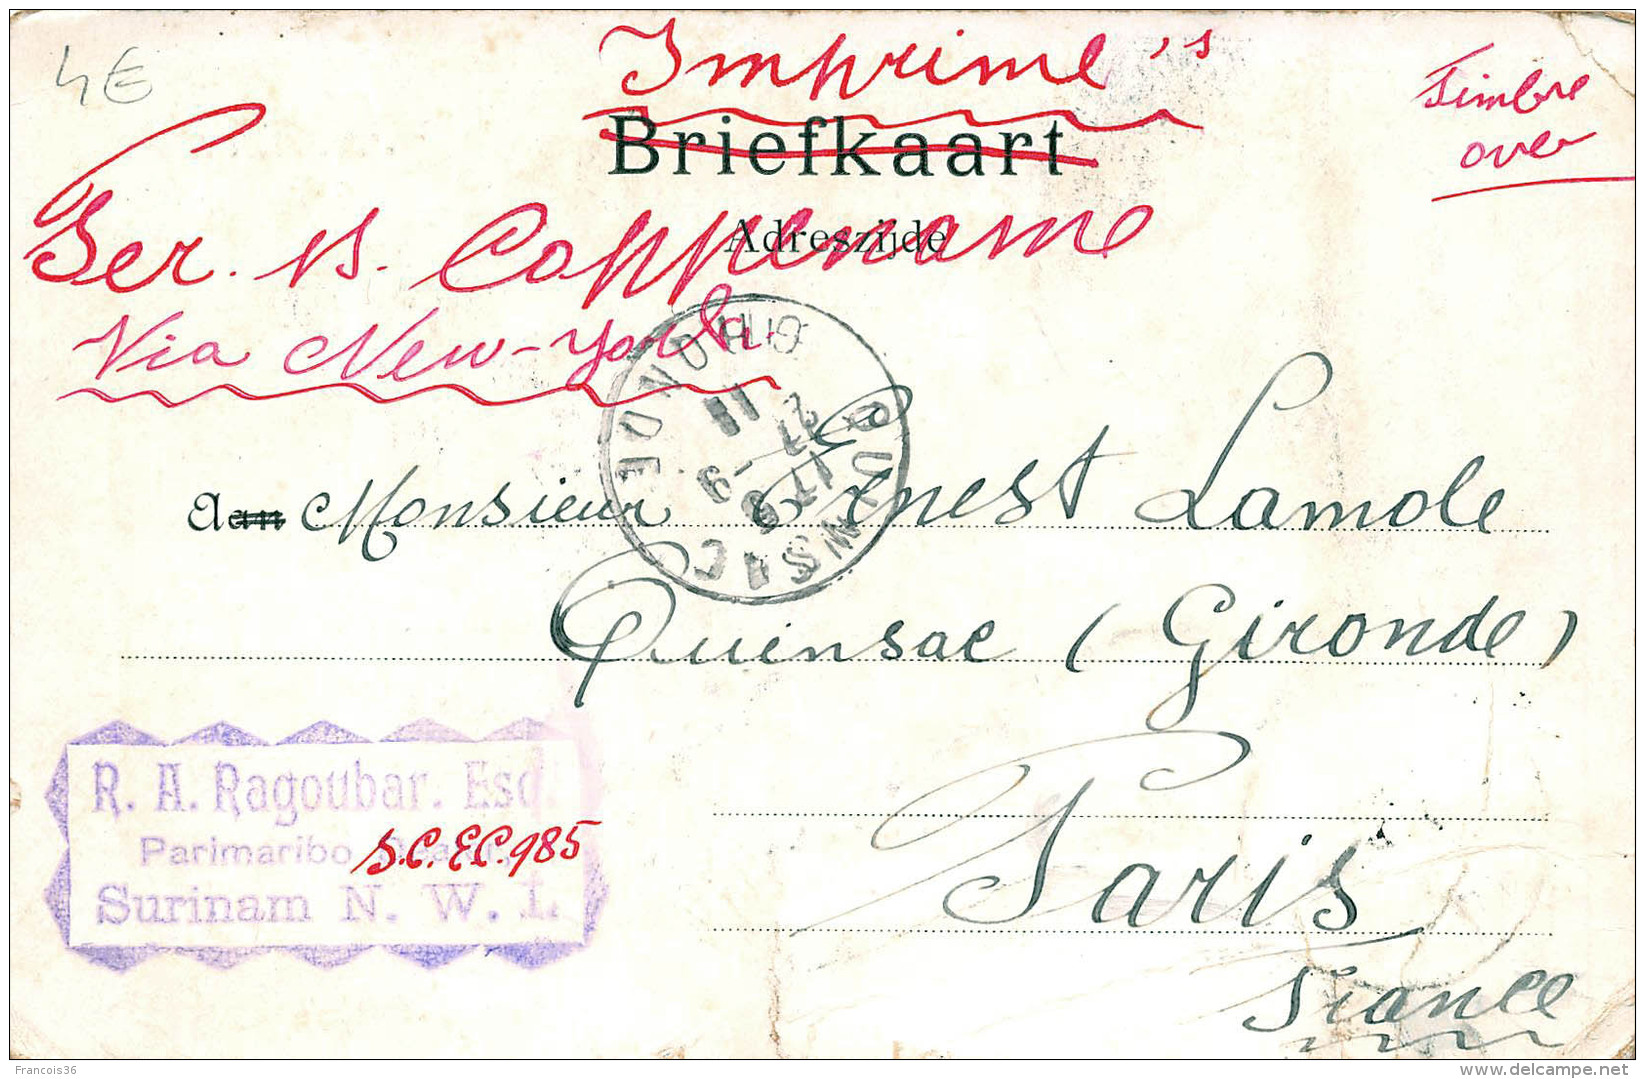 4€
Imprimé's
Timbre
over
Briefkaart
Adreszijde
Per. S. S. Coppename
Via New-York.
QUINSAC
GIRONDE
11
27 - 9
aan Monsieur Ernest Lamole
Quinsac (Gironde)
Paris
France
R. A. Ragoubar. Esq.
Parimaribo
S.C.E.C.985
Surinam N. W. I.
Francois36
delcampe.net